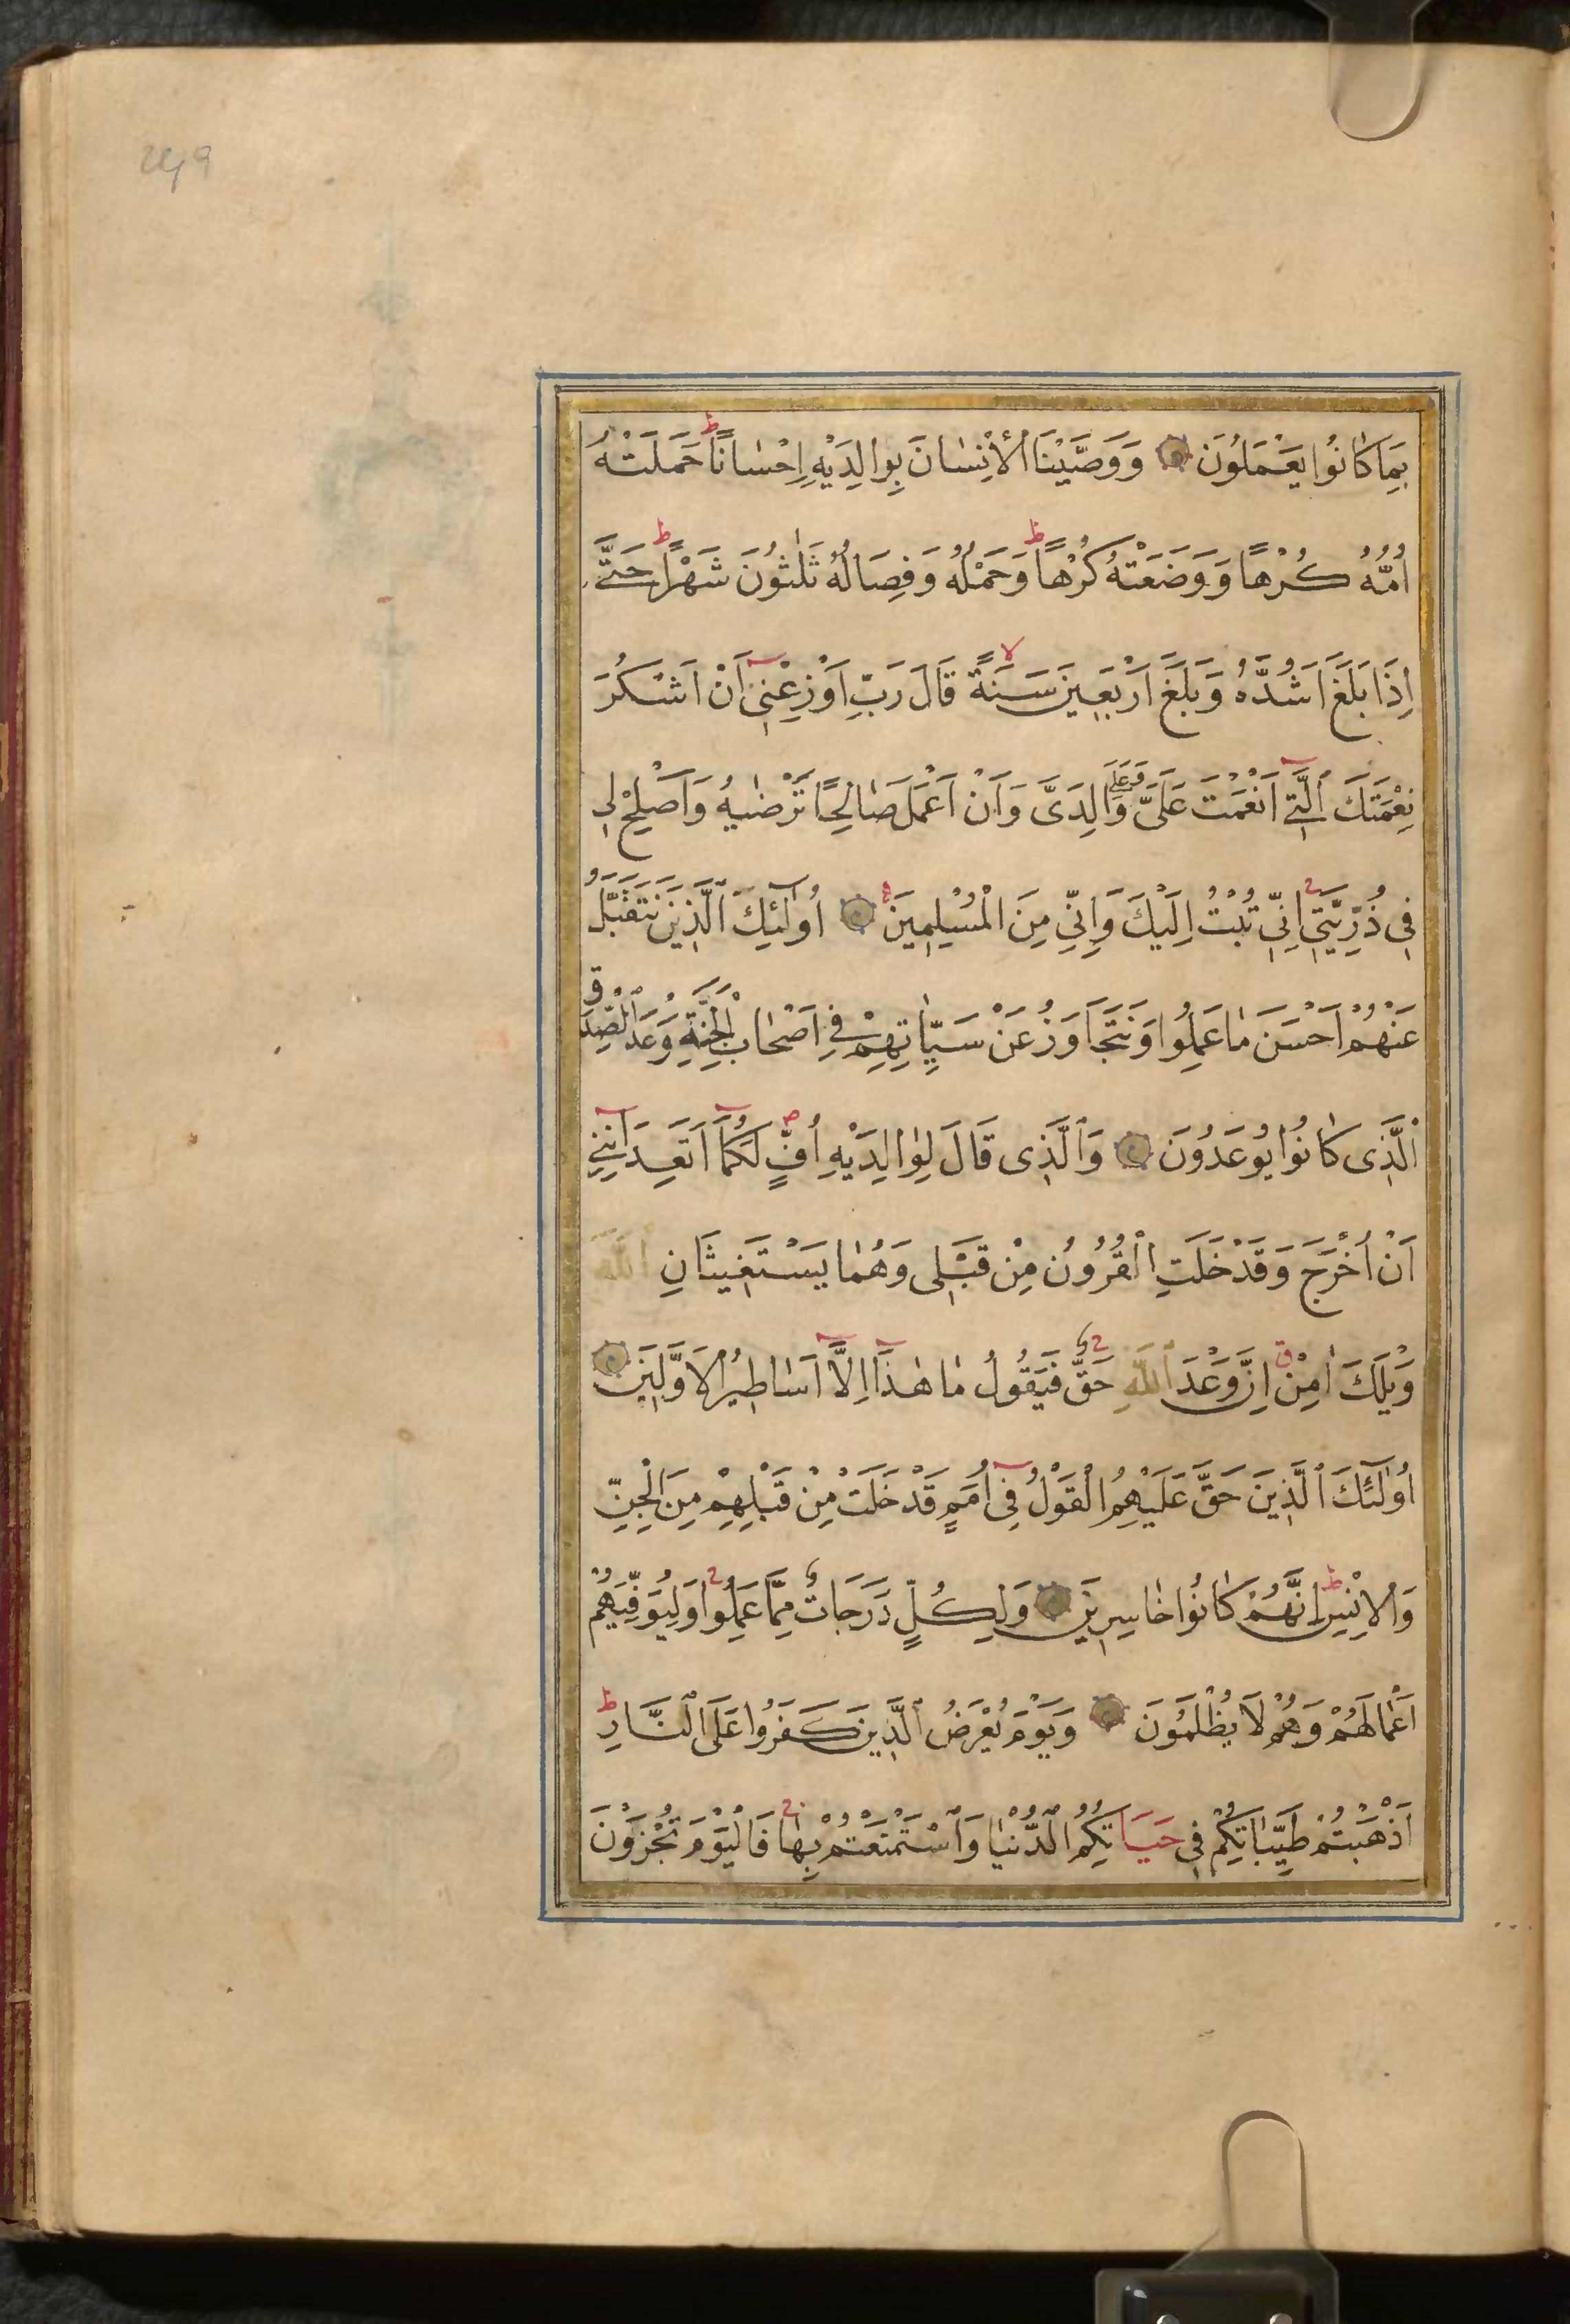 249
بِمَا كَانُوا يَعْمَلُونَ وَوَصَّيْنَا الْاِنْسَانَ بِوَالِدَيْهِ اِحْسَانًا ط حَمَلَتْهُ
اُمُّهُ كُرْهًا وَوَضَعَتْهُ كُرْهًا ط وَحَمْلُهُ وَفِصَالُهُ ثَلٰثُونَ شَهْرًا ط حَتَّى
اِذَا بَلَغَ اَشُدَّهُ وَبَلَغَ اَرْبَعِينَ سَنَةً لا قَالَ رَبِّ اَوْزِعْنِى اَنْ اَشْكُرَ
نِعْمَتَكَ الَّتِى اَنْعَمْتَ عَلَىَّ وَعَلَى وَالِدَىَّ وَاَنْ اَعْمَلَ صَالِحًا تَرْضٰيهُ وَاَصْلِحْ لِى
فِى ذُرِّيَّتِى ج اِنِّى تُبْتُ اِلَيْكَ وَاِنِّى مِنَ الْمُسْلِمِينَ اُولٰٓئِكَ الَّذِينَ نَتَقَبَّلُ
عَنْهُمْ اَحْسَنَ مَا عَمِلُوا وَنَتَجَاوَزُ عَنْ سَيِّاٰتِهِمْ فِى اَصْحَابِ الْجَنَّةِ وَعْدَ الصِّدْقِ
الَّذِى كَانُوا يُوعَدُونَ وَالَّذِى قَالَ لِوَالِدَيْهِ اُفٍّ لَكُمَا اَتَعِدَانِنِى
اَنْ اُخْرَجَ وَقَدْ خَلَتِ الْقُرُونُ مِنْ قَبْلِى وَهُمَا يَسْتَغِيثَانِ اللهَ
وَيْلَكَ اٰمِنْ ق اِنَّ وَعْدَ اللهِ حَقٌّ ج فَيَقُولُ مَا هٰذَا اِلَّا اَسَاطِيرُ الْاَوَّلِينَ
اُولٰٓئِكَ الَّذِينَ حَقَّ عَلَيْهِمُ الْقَوْلُ فِى اُمَمٍ قَدْ خَلَتْ مِنْ قَبْلِهِمْ مِنَ الْجِنِّ
وَالْاِنْسِ ط اِنَّهُمْ كَانُوا خَاسِرِينَ وَلِكُلٍّ دَرَجَاتٌ مِمَّا عَمِلُوا ج وَلِيُوَفِّيَهُمْ
اَعْمَالَهُمْ وَهُمْ لَا يُظْلَمُونَ وَيَوْمَ يُعْرَضُ الَّذِينَ كَفَرُوا عَلَى النَّارِ ط
اَذْهَبْتُمْ طَيِّبَاتِكُمْ فِى حَيَاتِكُمُ الدُّنْيَا وَاسْتَمْتَعْتُمْ بِهَا ج فَالْيَوْمَ تُجْزَوْنَ